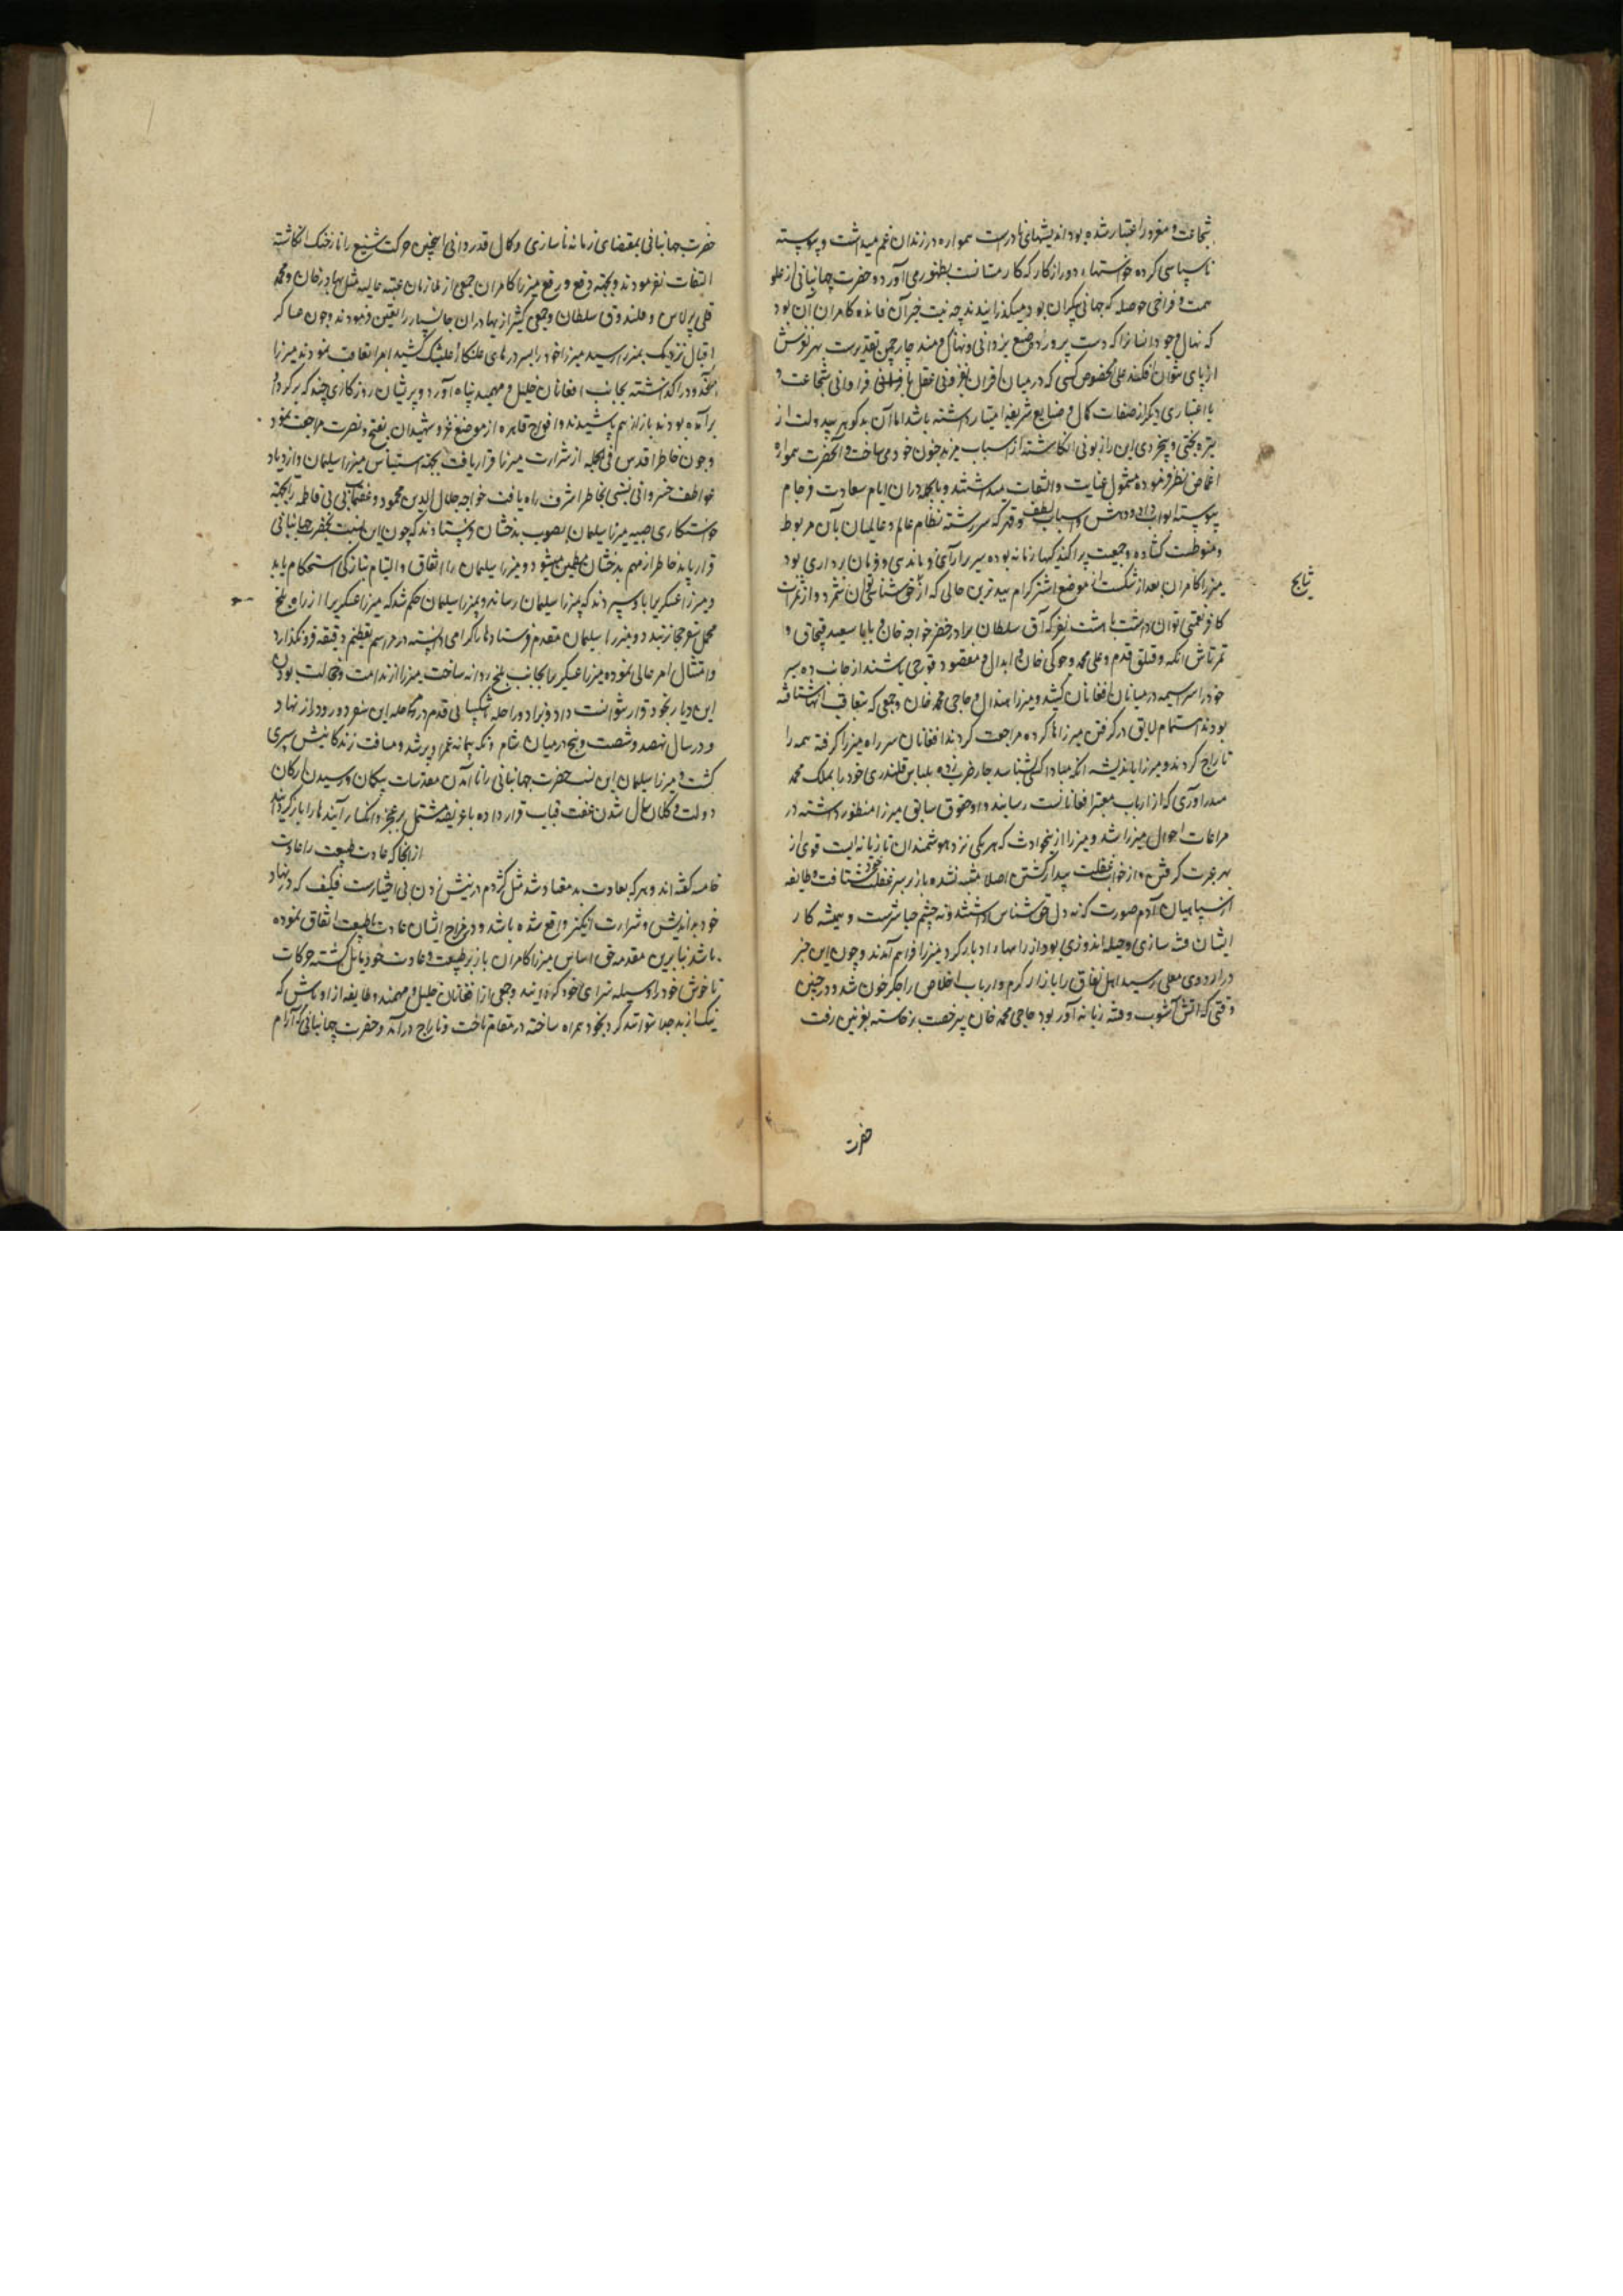 شجاعت و مغرور اعتبار شده بود اندیشهای نادرست همواره در زندان غم میداشت و پیوسته
ناسپاسی کرده خواستهاء دور از کار که کار متانت بظهور می‌آورد و حضرت جهانبانی از علو
همت و فراخی حوصله که جهانی بیکران بود میگذرانیدند چه نیت خیر آن فایده کامران آن بود
که نهال وجود انسانرا که دست پرورده صنع یزدانی و نهال برومند چارچمن تقدیرست بهر لغزش
از پای نتوان افکند علی الخصوص کسی که در میان اقران بفزونی عقل یا فراوانی شجاعت و
یا اعتباری دیگر از صفات کمال و صنایع شریفه امتیاز داشته باشد اما آن بدگوهر بیدولت از
تیره بختی و بیخردی این را زبونی انگاشته اسباب مزید جنون خود می ساخت و آنحضرت همواره
اغماض نظر فرموده مشمول عنایت و التفات میداشتند و بالجمله در آن ایام سعادت فرجام
پیوسته ابواب داد و دهش و اسباب لطف و قهر که سررشته نظام عالم و عالمیان بآن مربوط
و منوط است گشاده و جمعیت پراکندگیها زمانه بوده سریرآرای و پاندی و فرمان رداری بود
میرزا کامران بعد از شکست از موضع اشترکرام ببدترین حالی که از حق شناسی توان شمرد و از ثمرات
نتایج
کافر نعمتی توان دانست با هشت نفر که آق سلطان برادر خضر خواجه خان و بابا سعید قبچاق و
تمرتاش اتکه و قتلق قدم و علی محمد و جوکی خان و ابدال و مقصود قورچی باشند از جانب ده سبز
خود را سراسیمه در میانان افغانان کشید و میرزا هندال و حاجی محمد خان و جمعی که بتعاقب آنها شتافته
بودند اهتمام لایق در گرفتن میرزا ناکرده مراجعت کردند افغانان سر راه میرزا گرفته همه را
تاراج کردند و میرزا باندیشه آنکه مبادا کسی شناسد چار ضرب زده بلباس قلندری خود را بملک محمد
مندراوری که از ارباب معتبر افغانانست رسانید و او حقوق سابق میرزا منظور داشته در
مراعات احوال میرزا شد و میرزا ازینحوادث که هر یکی نزد هوشمندان تازیانه ایست قوی از
بهر عبرت گرفتن و از خواب غفلت بیدار گشتن اصلا متنبه نشده باز بر سر غفلت خود شتافت و طایفه
از سپاهیان آدم صورت که نه دل حق شناس داشتند و نه چشم حیا سرشت و همیشه کار
ایشان فتنه سازی و حیله اندوزی بود از راهها در ادبارگرد میرزا فراهم آمدند و چون این خبر
در اردوی معلی رسید اهل نفاق را بازار گرم و ارباب اخلاص را جگر خون شد و در چنین
وقتی که آتش آشوب و فتنه زبانه آور بود حاجی محمد خان بی رخصت برخاسته بغزنین رفت
حضرت
حضرت جهانبانی بمقتضای زمانه ناسازی و کمال قدردانی اینچنین حرکت شنیع را نازخنک انگاشته
التفات نفرمودند و بجهته دفع و رفع میرزا کامران جمعی از ملازمان عتبه عالیه مثل بهادر خان و محمد
قلی برلاس و قلندوق سلطان و جمعی کثیر از بهادران جانسپار را تعین فرمودند و چون عساکر
اقبال نزدیک بمیرزا رسید میرزا خود را بسر درهای علنکار و علیشنگ کشید امرا تعاقب نمودند میرزا
آن حدود را گذاشته بجانب افغانان خلیل و مهمند پناه آورد و پریشان روزگاری چند که بر گرد او
برآمده بودند باز از هم پاشیدند و افواج قاهره از موضع غزو شهیدان بفتح و نصرت مراجعت نمود
و چون خاطر اقدس فی الجمله از شرارت میرزا قرار یافت بجهته استیناس میرزا سلیمان و ازدیاد
عواطف خسروانی نسبتی بخاطر اشرف راه یافت خواجه جلال الدین محمود و عفتمآب بی بی فاطمه را بجهته
خواستگاری صبیه میرزا سلیمان بصوب بدخشان فرستادند که چون این نسبت بحضرت جهانبانی
قرار یابد خاطر از مهم بدخشان مطمئن میشود و میرزا سلیمان را اتفاق و التیام بتازگی استحکام یابد
و میرزا عسکری را باو سپردند که بمیرزا سلیمان رساند و بمیرزا سلیمان حکم شد که میرزا عسکری را از راه بلخ
محمل سفر حجاز بندد و میرزا سلیمان مقدم فرستادها را گرامی دانسته در مراسم تعظیم دقیقه فرونگذارد
و امتثال امر عالی نموده میرزا عسکری را بجانب بلخ روانه ساخت میرزا از ندامت و خجالت بودن
این دیار بخود قرار نتوانست داد و بزاد و راحله شکیبائی قدم در مرحله این سفر دور و دراز نهاد
و در سال نهصد و شصت و پنج در میان شام و مکه پیمانه عمر او پر شد و مسافت زندگانیش سپری
گشت و میرزا سلیمان این نسبت حضرت جهانبانی را تا آمدن مقدسات بیگان و رسیدن ارکان
دولت و کلان سال شدن عفت قباب قرار داده با عریضه مشتمل بر عجز و انکسار آیندها را بازگردانید
از آنجا که عادت طبیعت را عادت
خامسه گفته اند و هر که بعادت بد معتاد شد مثل کژدم در نیش زدن بی اختیارست فکیف که در نهاد
خود بداندیش و شرارت انگیز واقع شده باشد و در مزاج ایشان عادت با طبیعت اتفاق نموده
باشد بنابرین مقدمه حق اساس میرزا کامران باز بر طبیعت و عادت خود مایل گشته حرکات
ناخوش خود را وسیله سزای خود گردانید و جمعی از افغانان خلیل و مهمند و طایفه از اوباش که
نیک از بد جدا نتوانند کرد بخود همراه ساخته در مقام تاخت و تاراج درآمد و حضرت جهانبانی که آرام